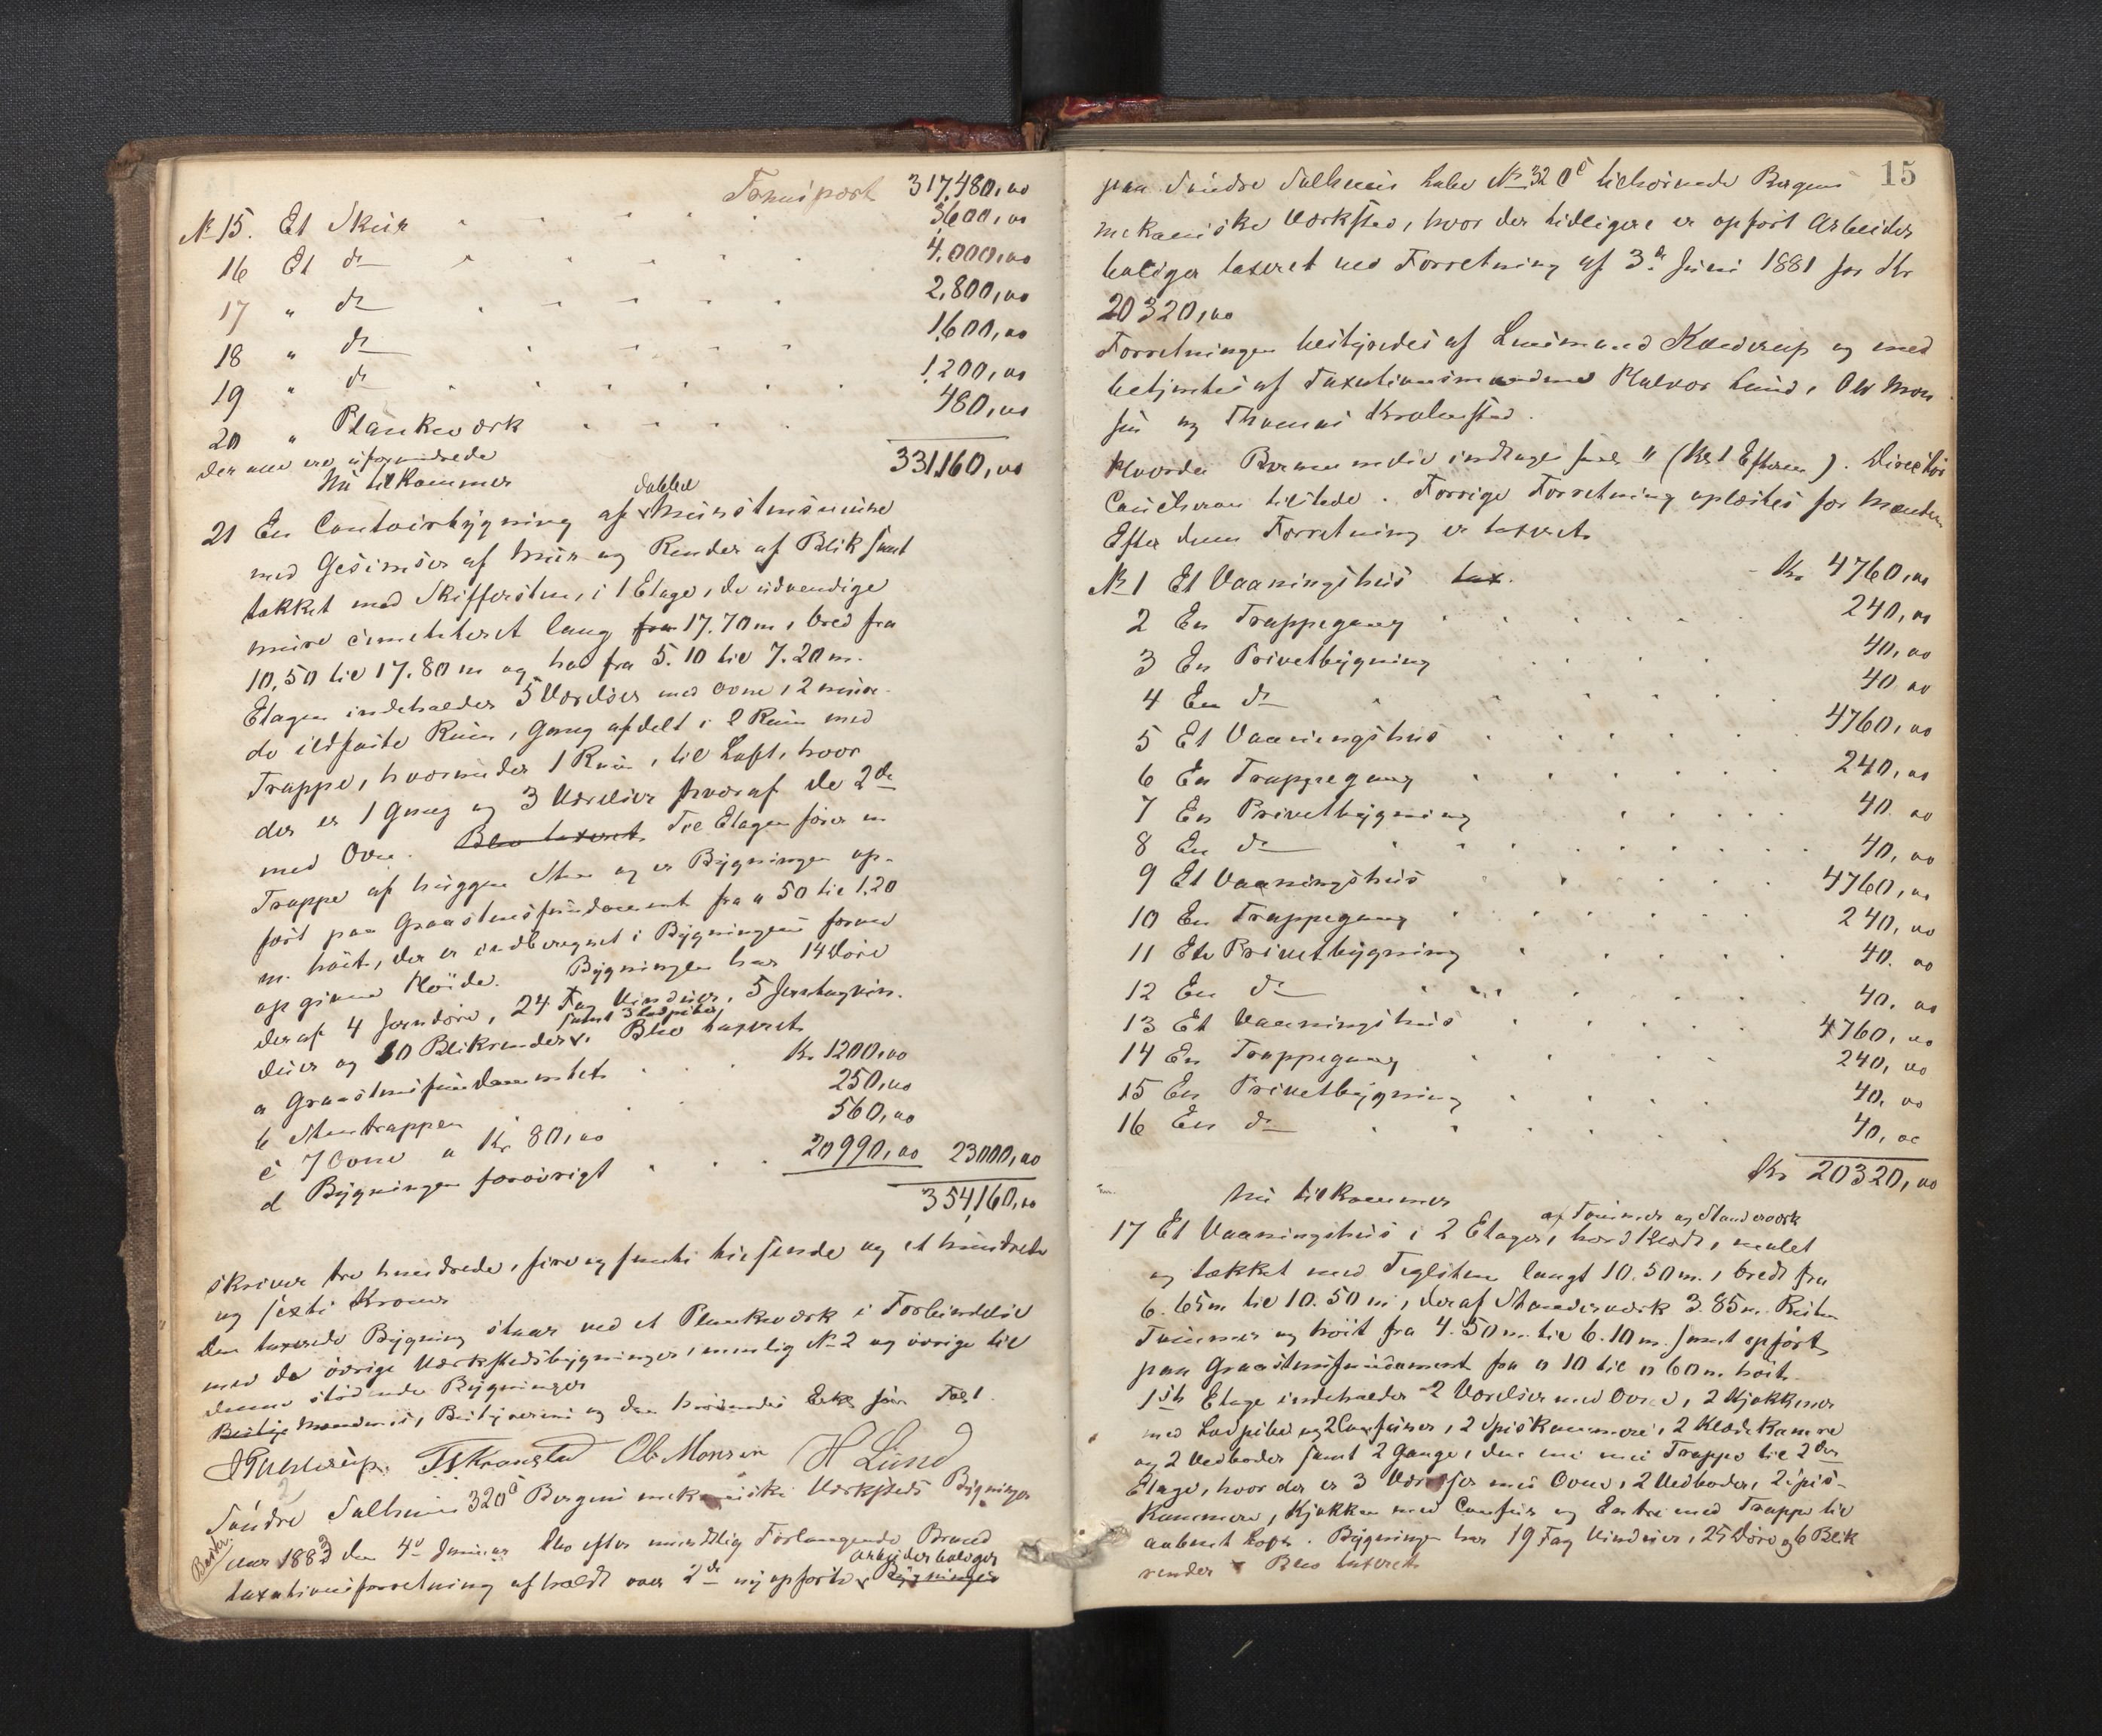 Transport 317,480,00
No 15. Et Skur 3600,00
16 Et do 4,000,00
17 " do 2,800,00
18 " do 1600,00
19 " do 1200,00
20 " Plankeværk 480,00
der alle ere uforandrede 331,160,00
Nu tilkommer
21 En Contoirbygning af dobbel Murstensmure
med Gesimser af Mur og Render af Blik samt
takket med Skiffersten, i 1 Etage, de udvendige
mure cimenteret lang fra 17.70 m, bred fra
10,50 til 17.80 m og høi fra 5.10 til 7.20 m.
Etagen indeholder 5 Værelser med Ovne, 2 mure-
de ildfaste Rum, Gang afdelt i 2 Rum med
Trappe, hvorunder 1 Rum, til Loft, hvor
der er 1 Gang og 3 Værelser hvoraf de 2de
med Ovn. Blev taxeret Til Etagen fører en
Trappe af huggen Sten og er Bygningen op-
ført paa Graastensfundament fra 0 50 til 1.20
m. høit, der er indberegnet i Bygningens foran
opgivne Høide. Bygningen har 14 Døre
deraf 4 Jerndøre, 24 Fag Vinduer, 5 Jerntagvin-
duer og 10 Blikrender samt 3 Ladpiber. Blev taxeret
a Graastensfundamentet Kr 1200,00
b Stentrappen 250,00
c 7 Ovne a Kr 80,00 560,00
d Bygningen forøvrigt 20990,00 23000,00
354,160,00
skriver tre hundrede, fire og femti tusende og et hundrede
og sexti Kroner
Den taxerede Bygning staar ved et Plankeværk i Forbindelse
med de øvrige Værkstedsbygninger, nemlig No 2 og øvrige til
denne stødende Bygninger
H Lund Ole Monsen
Søndre Solheim 320c Bergens mekaniske Værksteds Bygninger
Aar 1883 den 4de Januar blev efter mundtlig Forlangende Brand
taxationsforretning afholdt over 2de nyopførte Arbeiderboliger Bygninger
15
paa Søndre Solheim Løbe No 320c tilhørende Bergens
mekaniske Værksted, hvor der tidligere er opført Arbeider
boliger taxeret ved Forretning af 3de Juni 1881 for Kr
20320,00
Forretningen bestyredes af Lensmand Konderup og med
betjentes af Taxationsmændene Halvor Lund, Ole Mon
sen og Thomas Kronstad.
Efter denne Forretning er taxeret
No 1 Et Vaaningshus tax. Kr 4760,00
2 En Trappegang 240,00
3 En Privetbygning 40,00
4 En do 40 00
5 Et Vaaningshus 4760,00
6 En Trappegang 240,00
7 En Privetbygning 40 00
8 En do 40,00
9 Et Vaaningshus 4760,00
10 En Trappegang 240,00
11 En Privetbygning 40. 00
12 En do 40. 00
13 Et Vaaningshus 4760,00
14 En Trappegang 240,00
15 En Privetbygning 40,00
16 En do 40,00
Kr 20320,00
Nu tilkommer
17 Et Vaaningshus i 2 Etager, af Tømmer og Standerværk bordklædt, malet
og tækket med Teglsten langt 10.50 m, bredt fra
6.65 m til 10.50 m, deraf Standerværk 3.85 m Resten
Tømmer og høit fra 4.50 m til 6.10 m samt opført
paa Graastensfundament fra 0 10 til 0 60 m høit.
1ste Etage indeholder 2 Værelser med Ovne, 2 Kjøkkener
med Ladpiber og 2 Comfurer, 2 Spiskammere, 2 Klædekamre
og 2 Vedboder samt 2 Gange, den ene med Trappe til 2den
Etage, hvor der er 3 Værelser med Ovne, 2 Vedboder, 2 Spis-
kammere, Kjøkken med Comfur og Entre med Trappe til
aabent Loft. Bygningen har 19 Fag Vinduer, 25 Døre og 6 Blik
render Blev taxeret